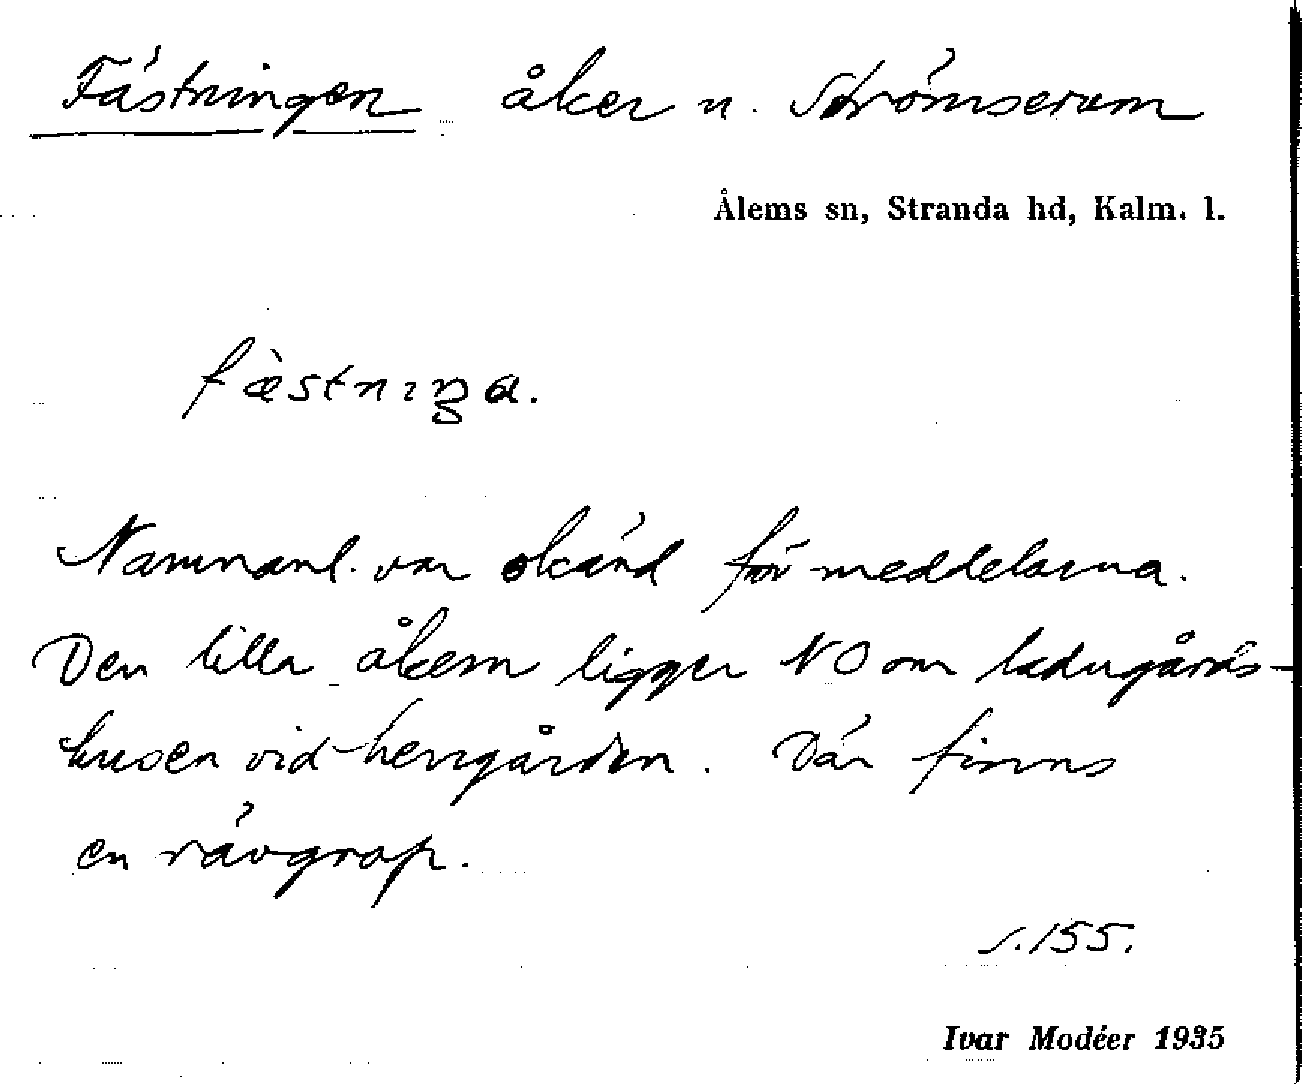 Fästningen åker n. Strömserum
Ålems sn, Stranda hd, Kalm. l.
fæ̀stnıŋa.
Namnanl. var okänd för meddelarna.
Den lilla åkern ligger NO om ladugårds-
husen vid herrgården. Där finns
en rävgrop.
s. 155.
Ivar Modéer 1935